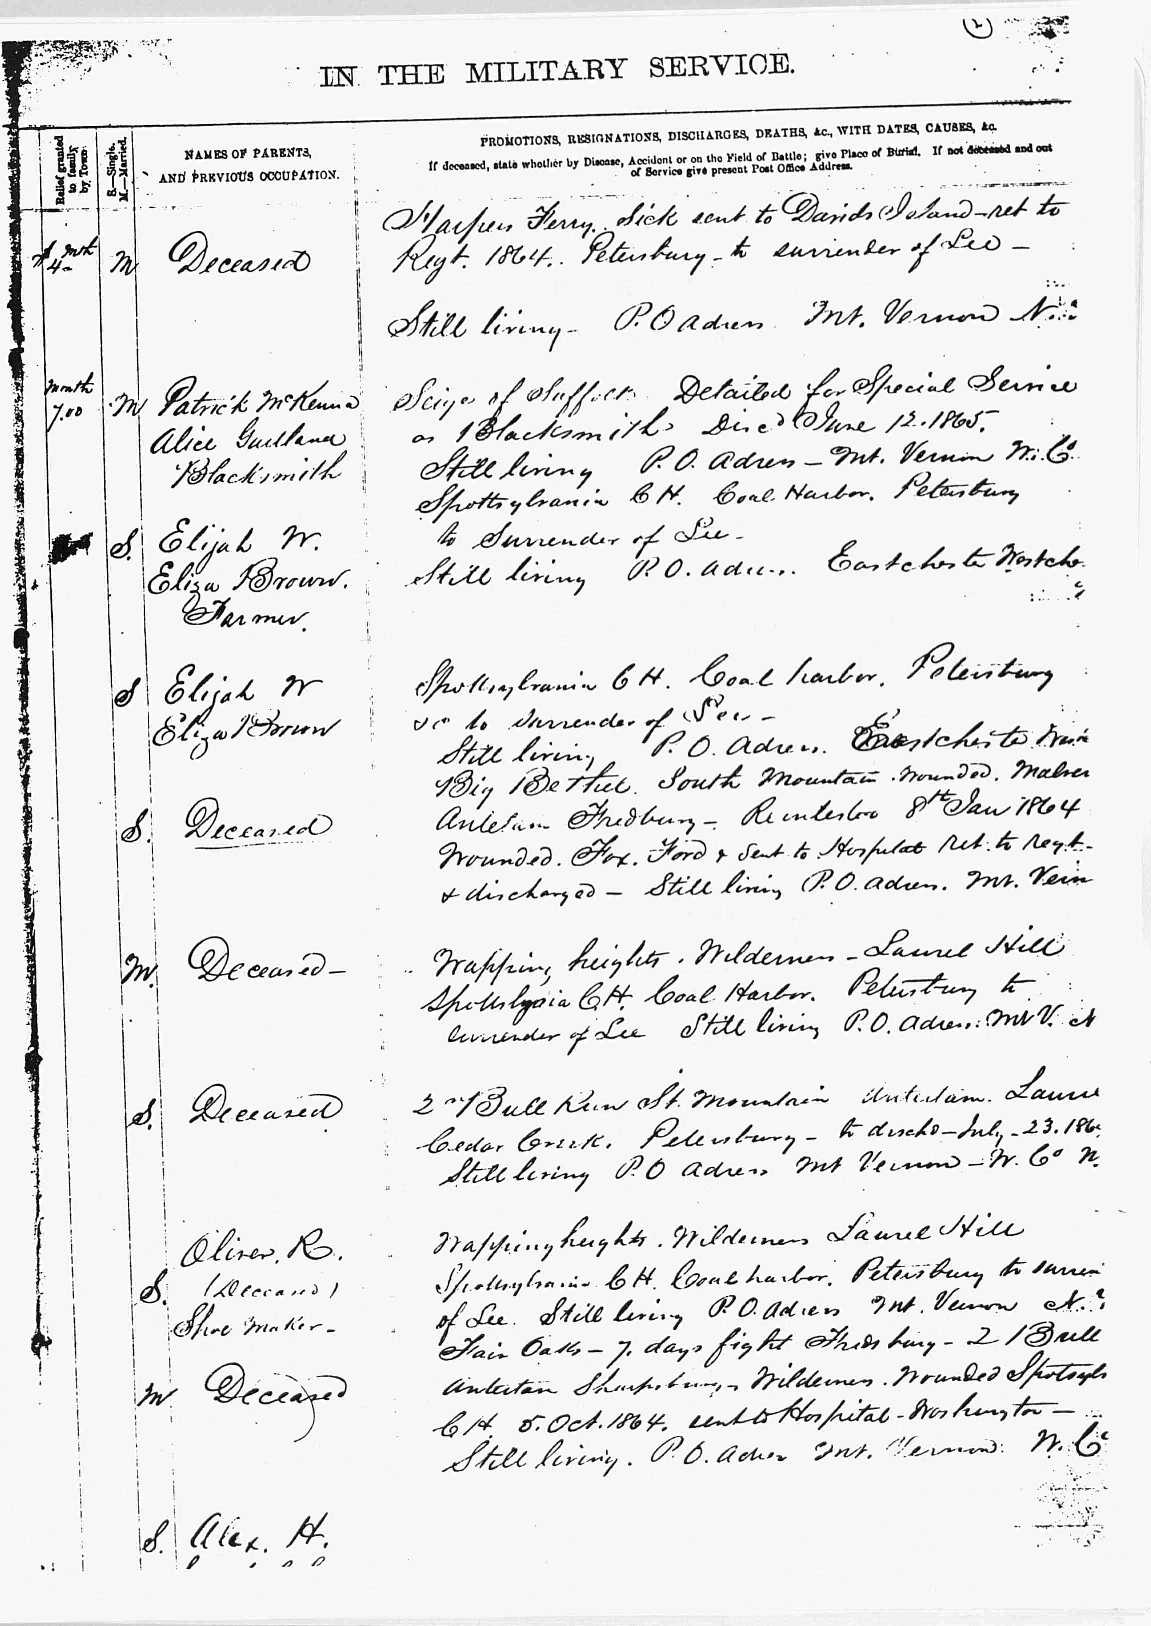 2
IN THE MILITARY SERVICE.
Relief granted to family by Town.
S.—Single. M.—Married.
NAMES OF PARENTS, AND PREVIOUS OCCUPATION.
PROMOTIONS, RESIGNATIONS, DISCHARGES, DEATHS, &c., WITH DATES, CAUSES, &c.
If deceased, state whether by Disease, Accident or on the Field of Battle; give Place of Burial. If not deceased and out
of Service give present Post Office Address.
Harpers Ferry. Sick sent to Davids Island - ret to
4 mth M Deceased Regt. 1864. Petersburg - to surrender of Lee -
Still living - P.O adress Mt. Vernon N.
month 7.00 M Patrick McKenna Seige of Suffolk Detailed for Special Service
Alice as Blacksmith Disc'd June 12. 1865.
Blacksmith Still living P.O. adress - Mt. Vernon W. Co
Spottsylvania C H. Coal Harbor. Petersburg
S. Elijah W. to Surrender of Lee -
Eliza Brown. Still living P.O. adress. Eastchester Westche
Farmer.
S Elijah W Spottsylvania C H. Coal harbor. Petersburg
Eliza Brown to surrender of Lee -
Still living P.O. adress. Eastchester
Big Bethel. South Mountain. wounded. Malver
S. Deceased Antetam Fredburg - 8th Jan 1864
Wounded. Fox. Ford & sent to Hospital ret. to regt -
& discharged - Still living P.O. adress. Mt. Vern
M. Deceased - Wapping heights. Wilderness - Laurel Hill
C.H. Coal Harbor. Petersburg to
surrender of Lee Still living P.O. adress. Mt V. N
S. Deceased 2nd Bull Run St. Mountain Antietam. Laure
Cedar Creek. Petersburg - to dischd - July - 23. 186
Still living P.O adress Mt Vernon - W. Co N.
Oliver. R. Wapping heights. Wilderness Laurel Hill
S. (Deceased) Spottsylvania C H. Coal harbor. Petersburg to surren
Shoe Maker - of Lee. Still living P.O. adress Mt. Vernon N.
Fair Oaks - 7. days fight Fredsburg - 2 Bull
M Deceased Antetam Sharpsburg - Wilderness. Wounded Spotsyl
C H. 5. Oct. 1864. sent to Hospital - Washington -
Still living. P.O. adress Mt. Vernon W. Co
S. Alex. H.